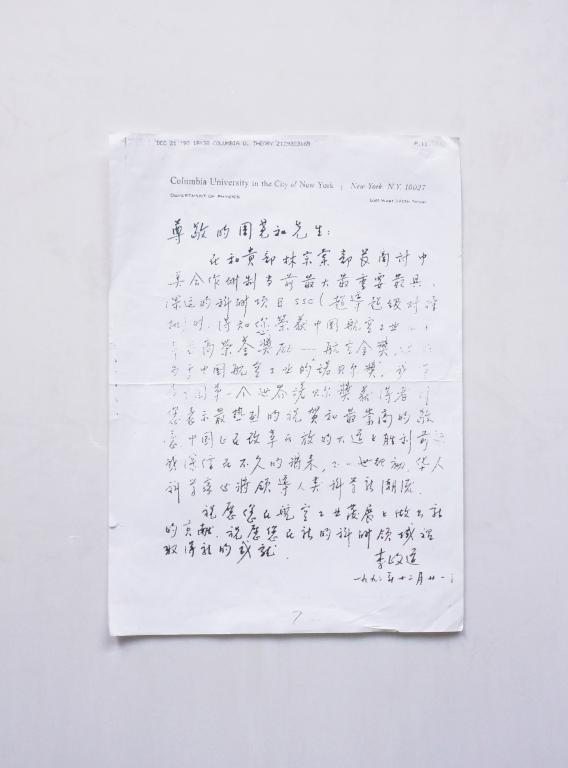 DEC 21 '92 18:38 COLUMBIA U. THEORY P.11
Columbia University in the City of New York | New York N.Y. 10027
DEPARTMENT OF PHYSICS 538 West 120th Street
尊敬的周晃和先生:
在和贵部林宗棠部长商讨中
美合作研制当前最大最重要最具
深远的科研项目SSC(超导超级对撞
机)时,得知您荣获中国航空工业
最高荣誉奖励——航空金奖,
中国航空工业的"诺贝尔奖",
第一个世界诺贝尔奖获得者
您表示最热烈的祝贺和最崇高的敬
意中国正在改革开放的大道上胜利前
我深信在不久的将来,二十一世纪初,华人
科学家必将领导人类科学新潮流.
祝愿您在航空工业发展上做出新
的贡献.祝愿您在新的科研领域里
取得新的成就.
李政道
一九九二年十二月廿一
7